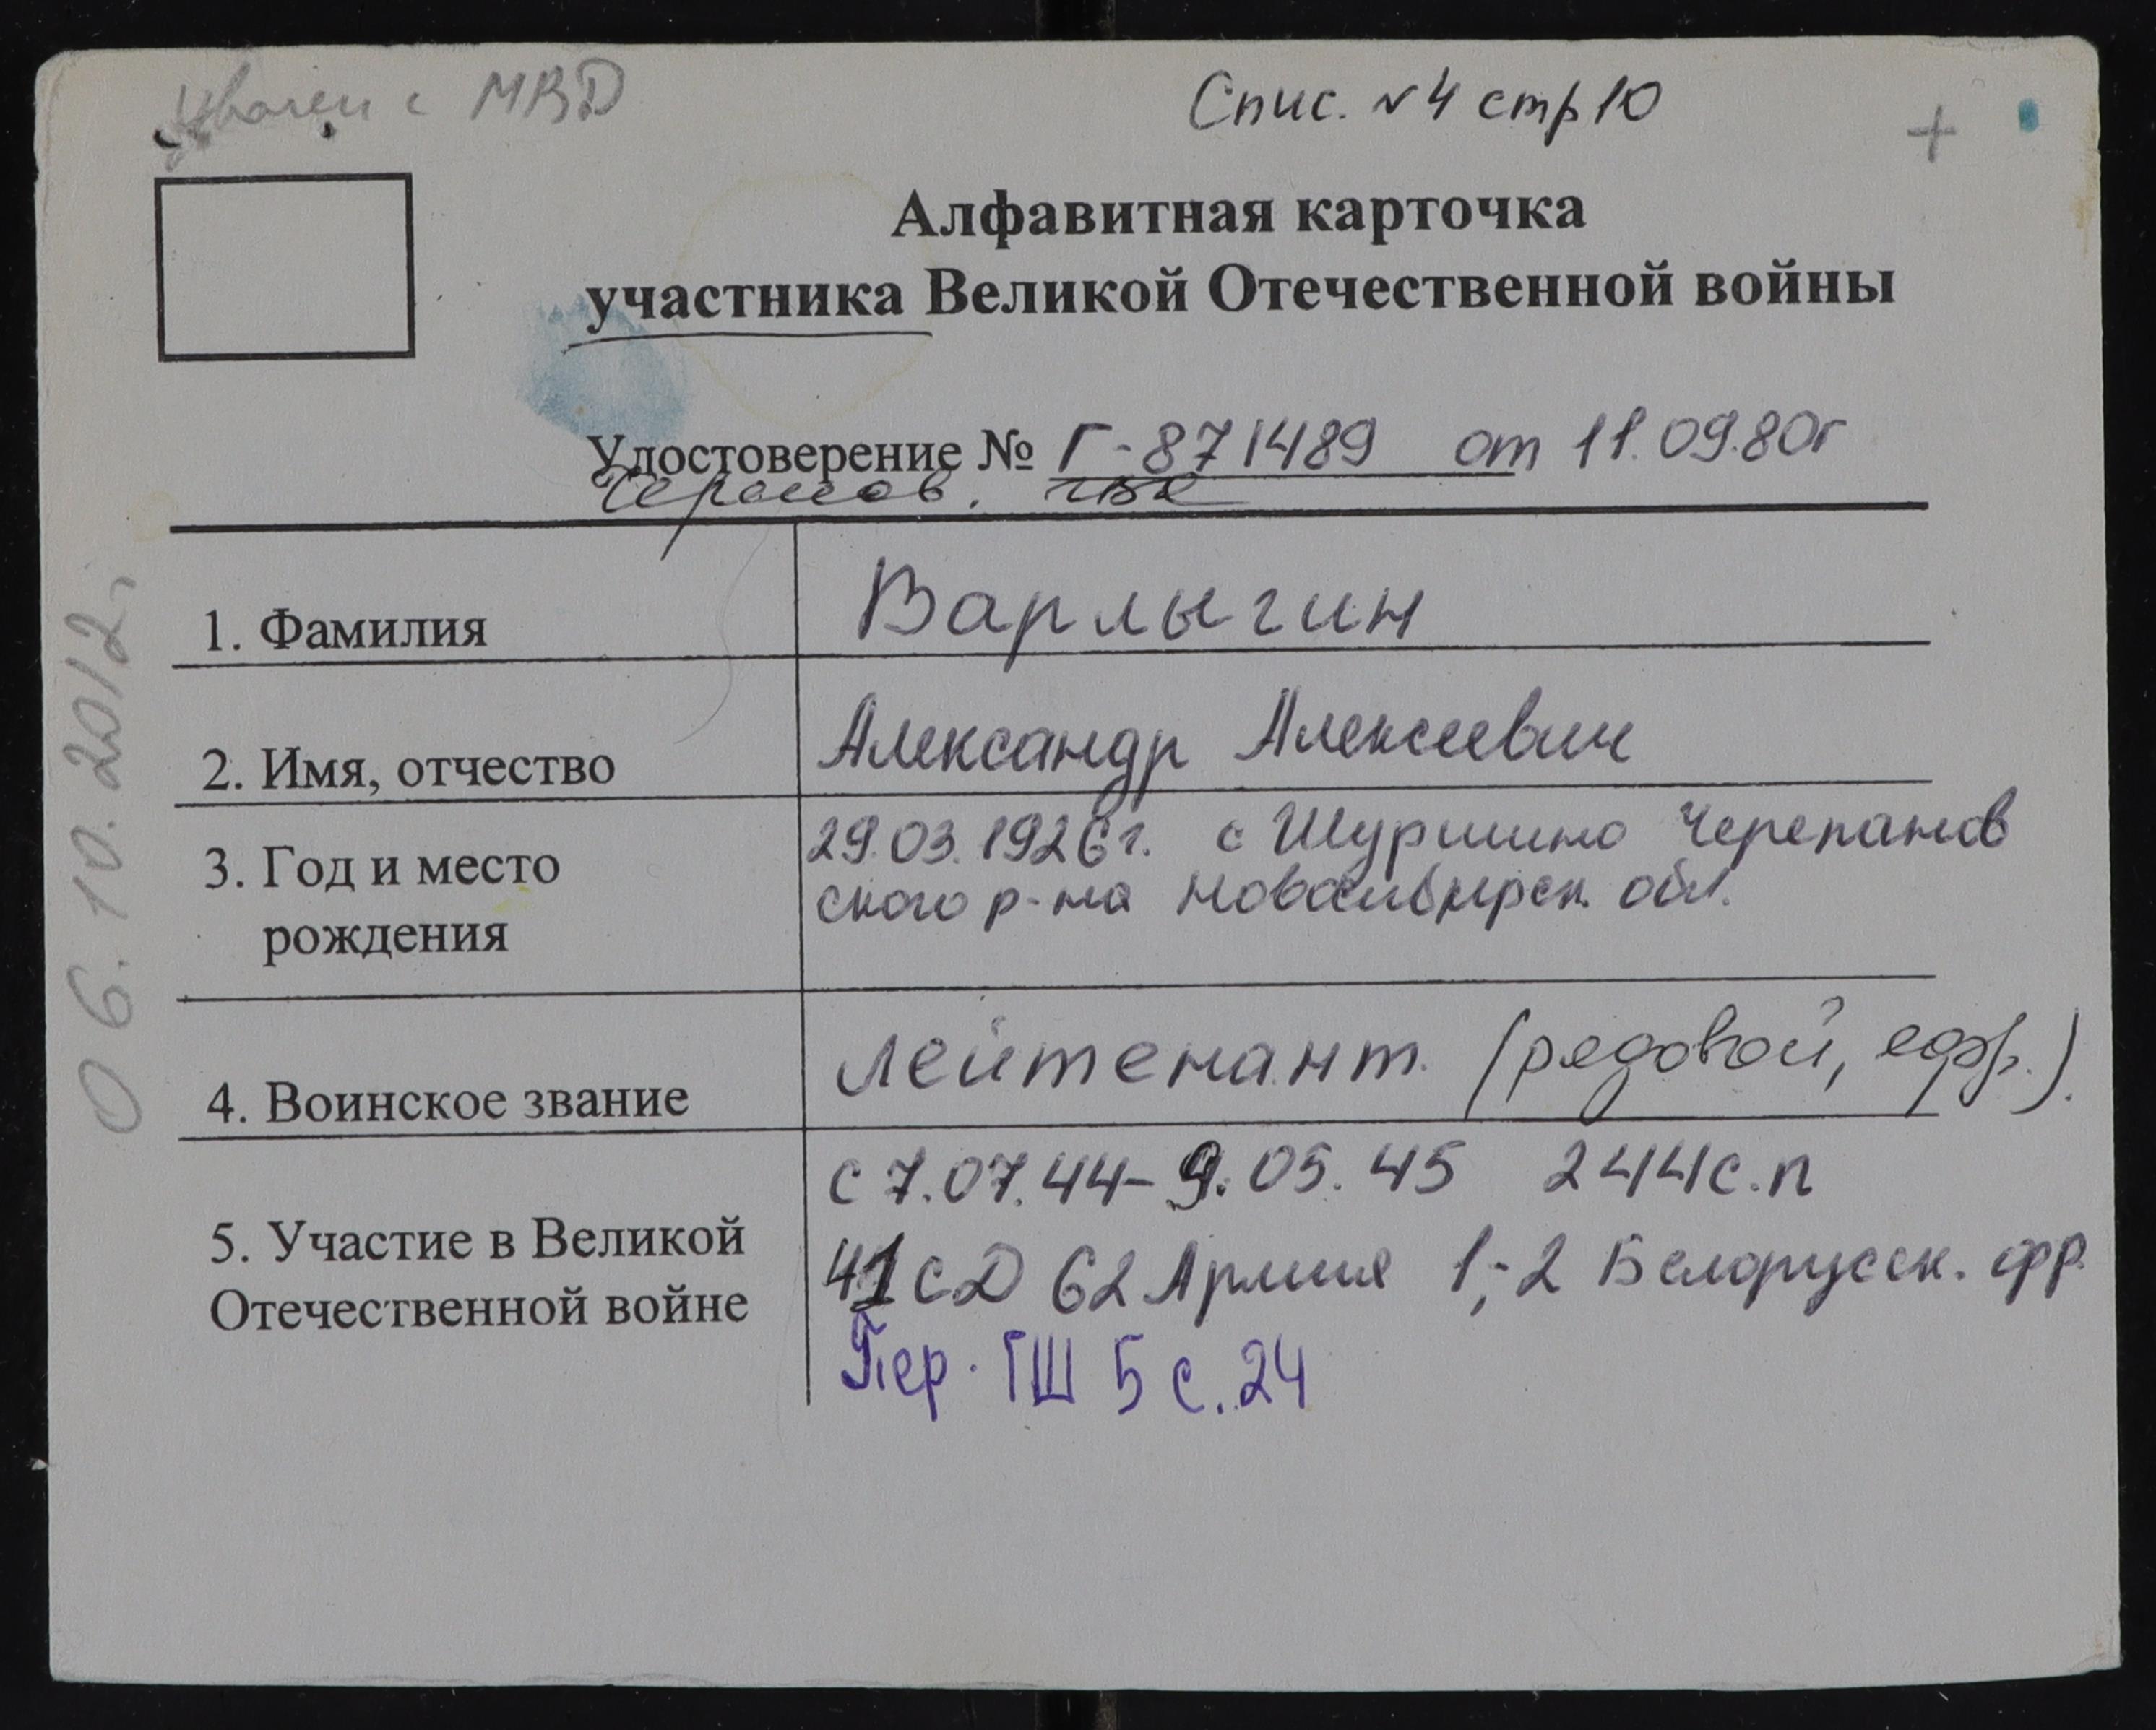 Уволен с МВД
Спис. №4 стр 10
+
Алфавитная карточка
участника Великой Отечественной войны
Удостоверение № Г-871489 от 11.09.80г
06.10.2012г
1. Фамилия Варлыгин
2. Имя, отчество Александр Алексеевич
3. Год и место рождения 29.03.1926г. с Шурыгино Черепанов
ского р-на Новосибирск обл.
4. Воинское звание лейтенант. (рядовой, ефр.).
5. Участие в Великой Отечественной войне с 7.07.44-9.05.45 244 с.п
41 сД 62 Армия 1,-2 Белорусск. фр.
Пер. ГШ 5 с. 24